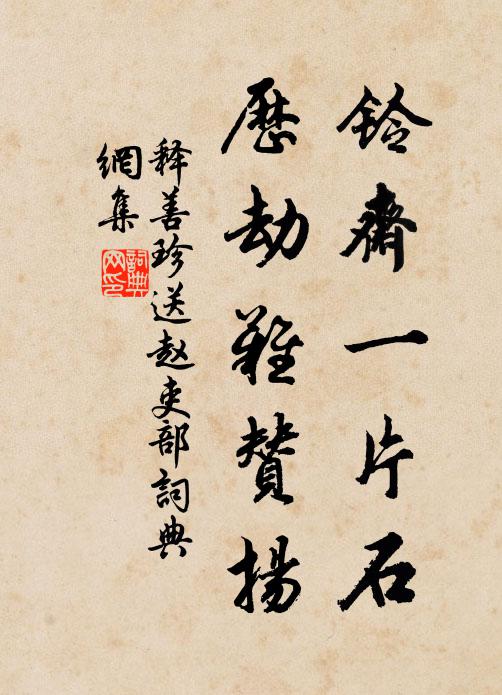 鈴齋一片石
歷劫難贊揚
释善珍送赵吏部詞典
網集
詞典
网印